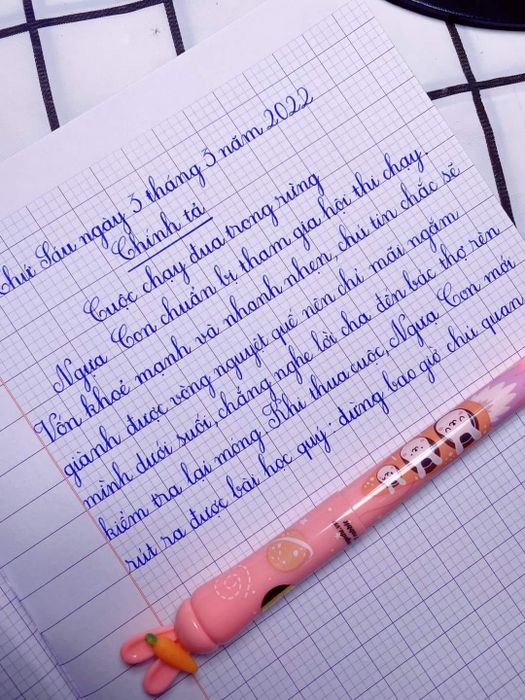 Thứ Sáu ngày 3 tháng 3 năm 2022
Chính tả
Cuộc chạy đua trong rừng
Ngựa Con chuẩn bị tham gia hội thi chạy.
Vốn khoẻ mạnh và nhanh nhẹn, chú tin chắc sẽ
giành được vòng nguyệt quế nên chỉ mải ngắm
mình dưới suối, chẳng nghe lời cha đến bác thợ rèn
kiểm tra lại móng. Khi thua cuộc, Ngựa Con mới
rút ra được bài học quý: đừng bao giờ chủ quan